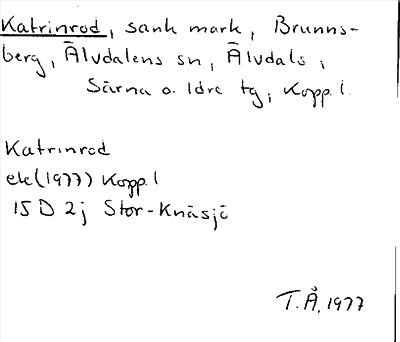 Katrinrod, sank mark, Brunns-
berg, Älvdalens sn, Älvdals,
Särna o. Idre tg, Kopp. l.
Katrinrod
ek (1977) Kopp. l
15 D 2j Stor-Knäsjö
T. Å. 1977